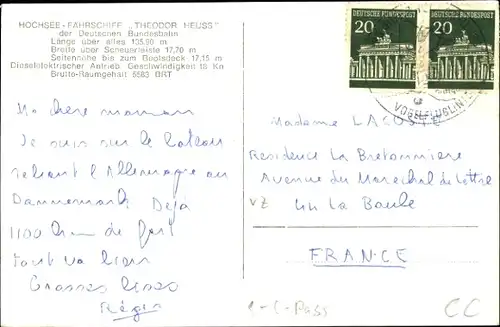 HOCHSEE-FÄHRSCHIFF „THEODOR HEUSS"
der Deutschen Bundesbahn
Länge über alles 135,90 m
Breite über Scheuerleiste 17,70 m
Seitenhöhe bis zum Bootsdeck 17,15 m
Dieselelektrischer Antrieb. Geschwindigkeit 18 Kn
Brutto-Raumgehalt 5583 BRT
DEUTSCHE BUNDESPOST
20
DEUTSCHE BUNDESPOST
20
VOGELFLUGLINIE
Ma chère maman
Je suis sur le bateau
reliant l'Allemagne au
Dannemark Déjà
1100 km de fait
tout va bien
Grosses bises
Régis
Madame LACOSTE
Residence La Bretonniere
Avenue du Marechal de Lattre
VZ 44 La Baule
FRANCE
CC